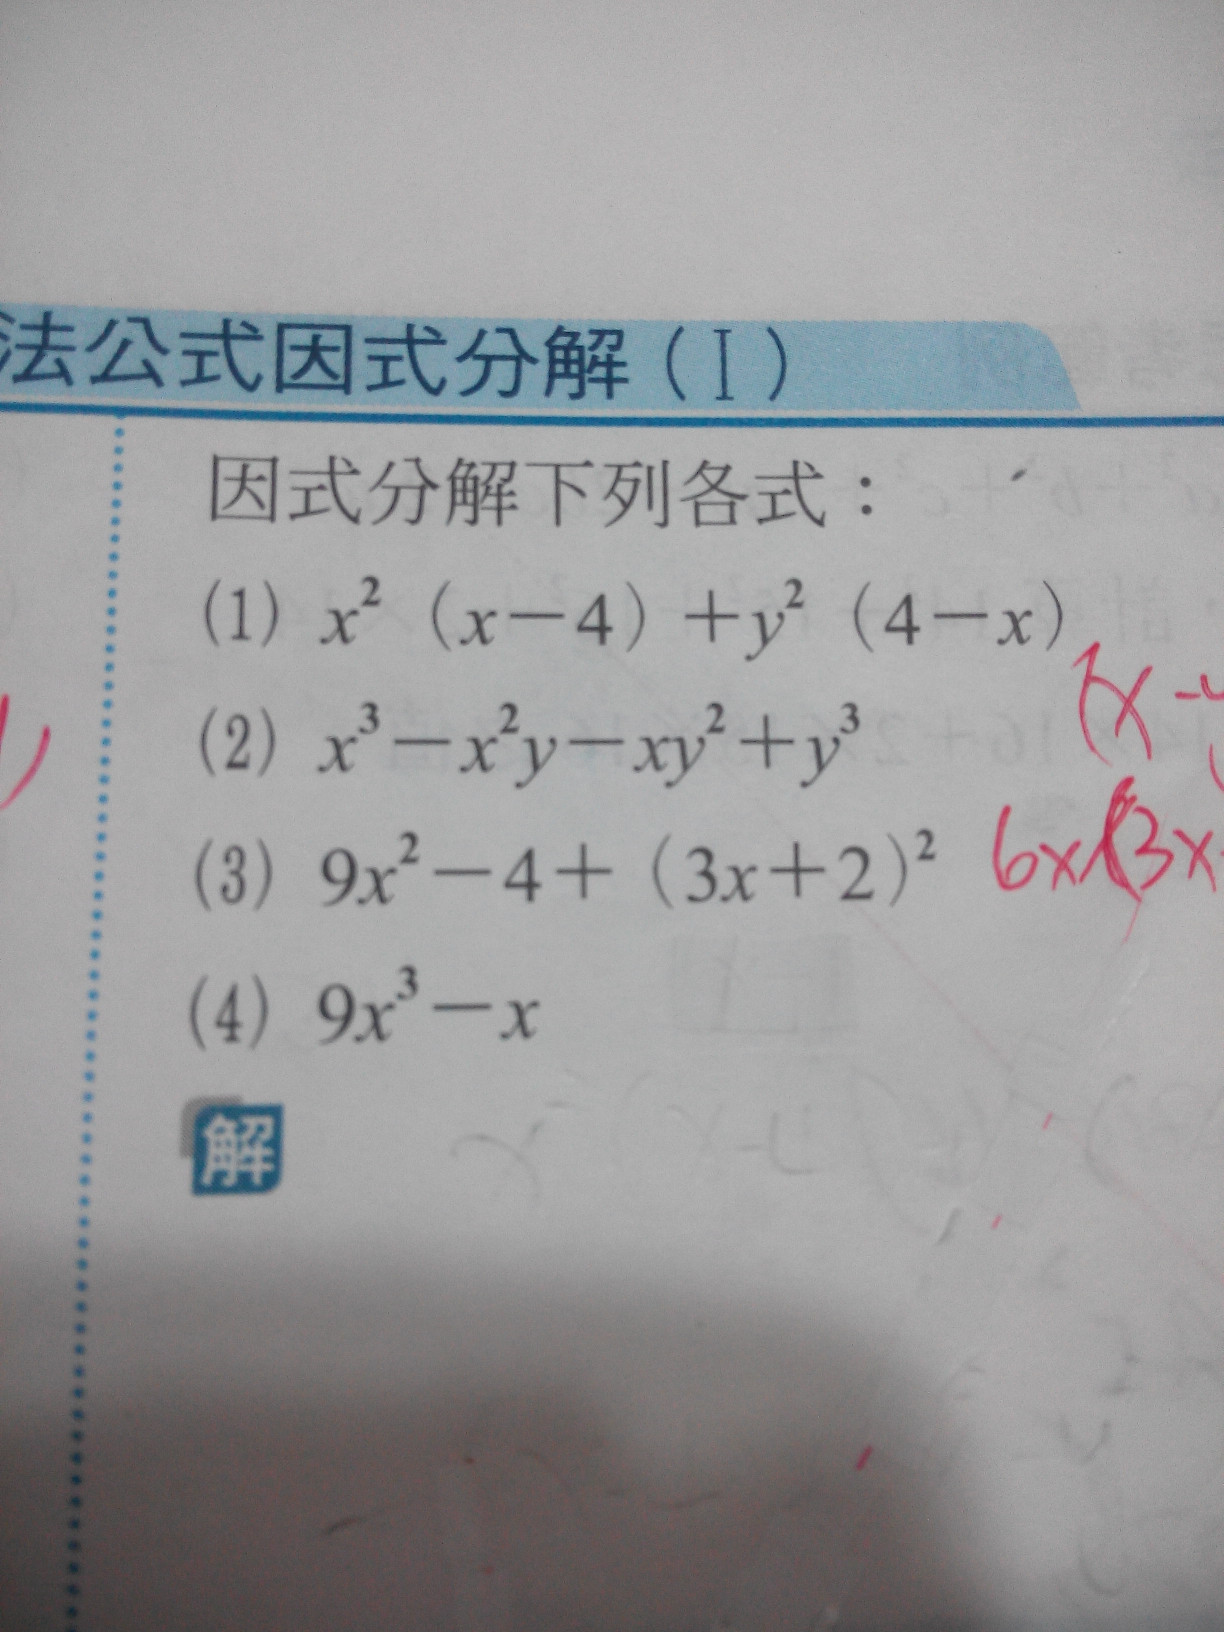 法公式因式分解(I)
因式分解下列各式：
(1) x² (x－4) ＋y² (4－x)
(2) x³－x²y－xy²＋y³
(3) 9x²－4＋ (3x＋2)²
6x(3x
(4) 9x³－x
解